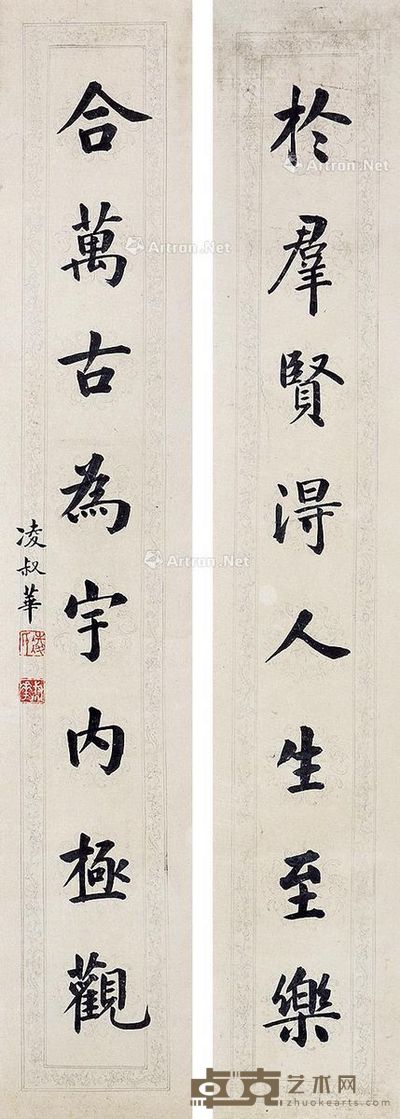 於羣賢得人生至樂
合萬古為宇内極觀
凌叔華
Artron.Net
Artron.Net
Artron.Net
Artron.Net
卓克艺术网
zhuokearts.com